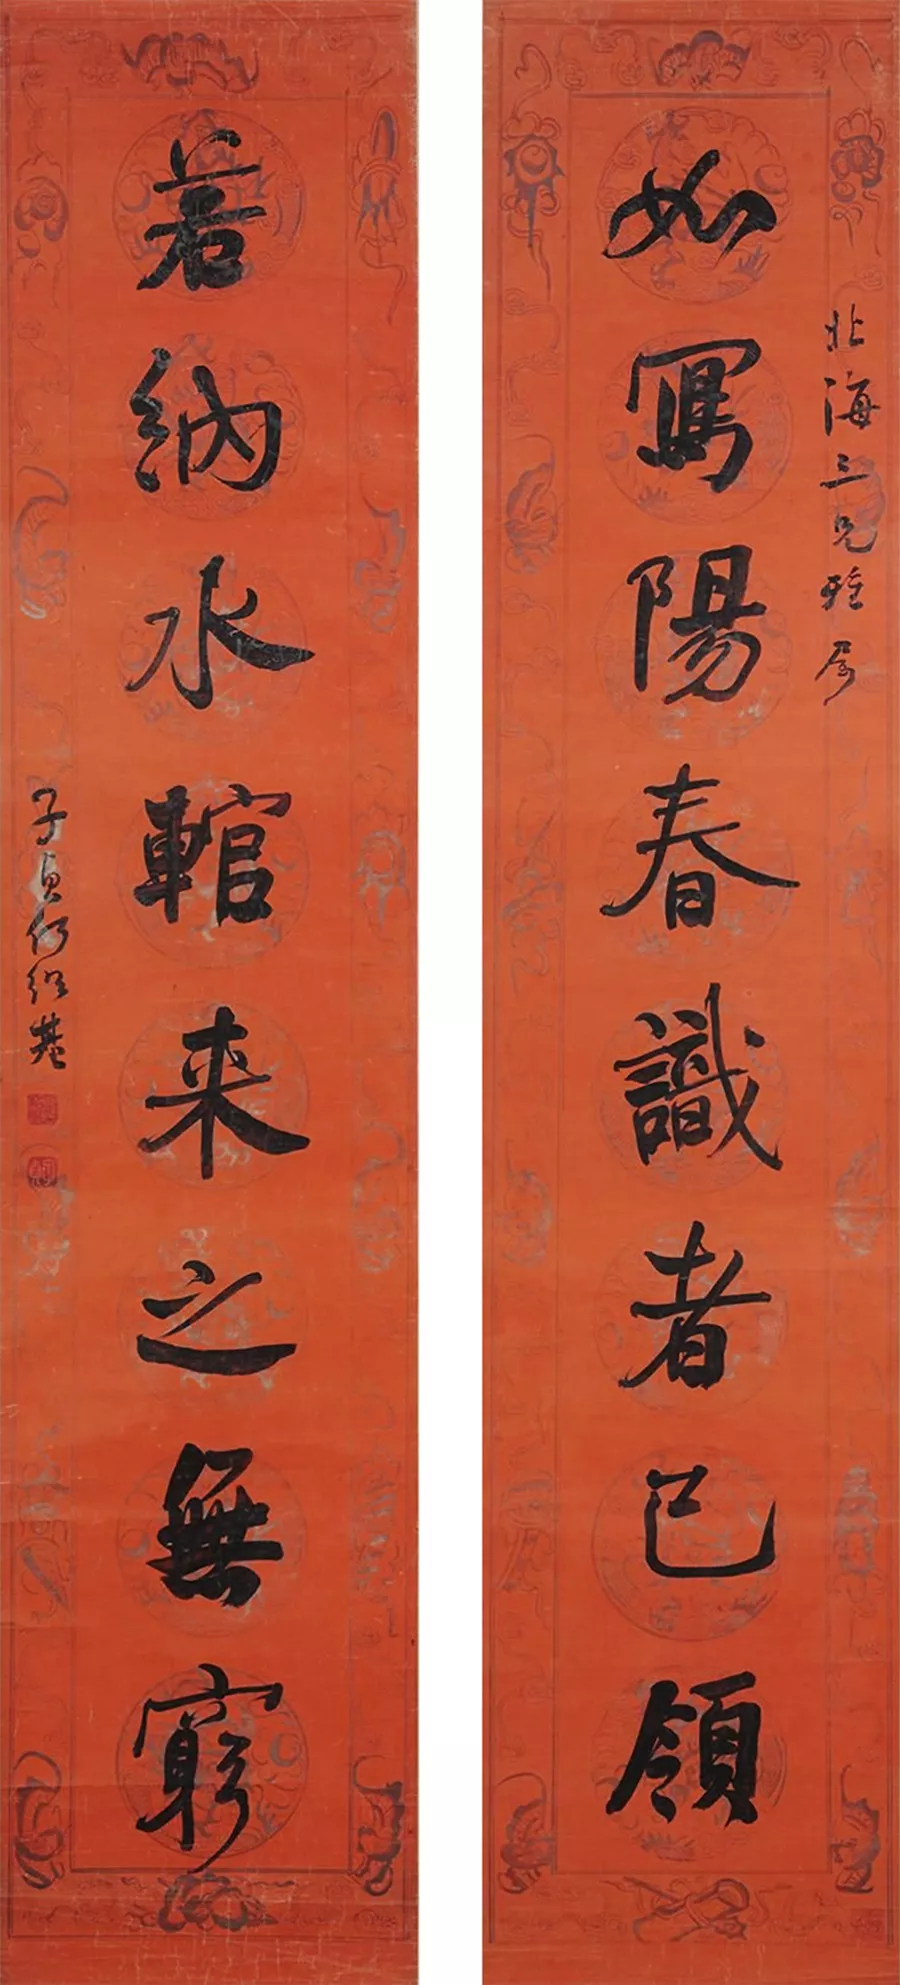 北海三兄雅属
如寫陽春識者已領
若納水輨来之無窮
子貞何紹基